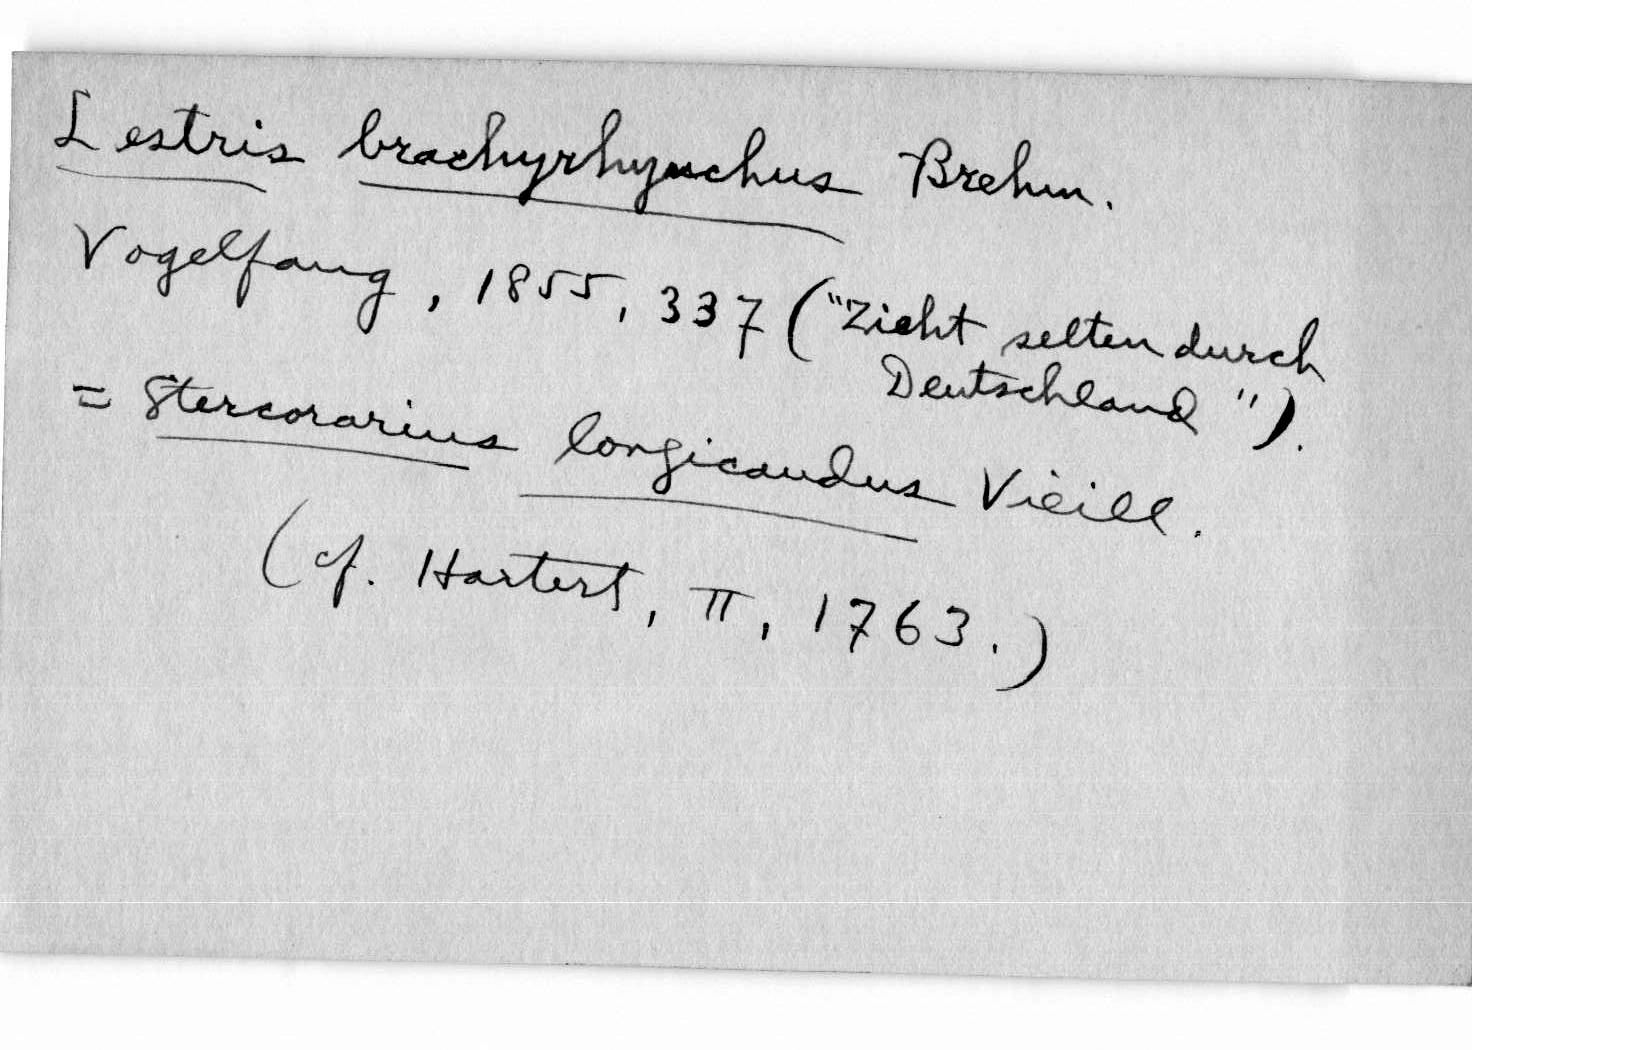 Lestris brachyrhynchus Brehm.
Vogelfang, 1855, 337 ("Zieht selten durch
Deutschland").
= Stercorarius longicaudus Vieill.
(cf. Hartert, II, 1763.)